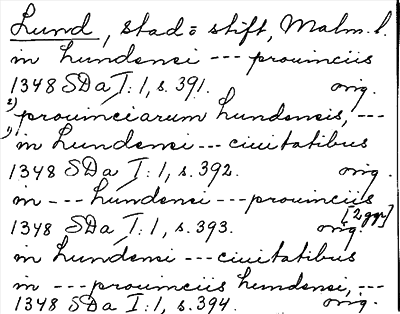 Lund, stad = stift, Malm. l.
in Lundensi --- prouinciis
1348 SDa I: 1, s. 391. orig.
2) prouinciarum lundensis, ---
1) in Lundensi --- ciuitatibus
1348 SDa I: 1, s. 392. orig.
in --- Lundensi --- prouinciis
[2 ggr]
1348 SDa I: 1, s. 393. orig.
in Lundensi --- ciuitatibus
in --- prouinciis lundensi, ---
1348 SDa I: 1, s. 394. orig.